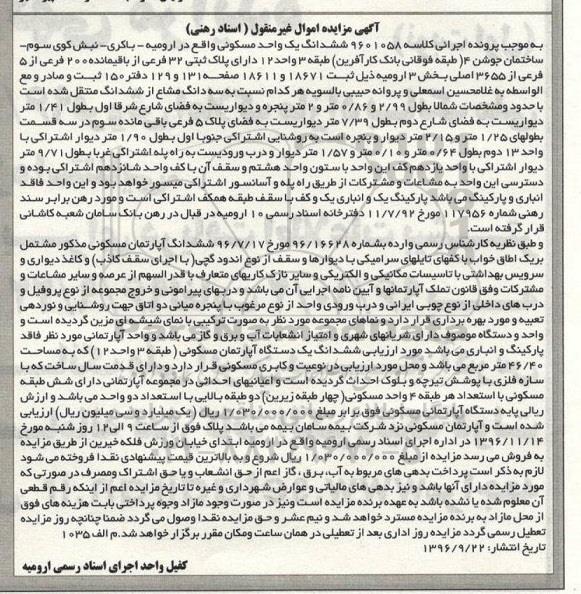 آگهی مزایده اموال غیرمنقول ( اسناد رهنی)
به موجب پرونده اجرائی کلاسه ۹۶۰۱۰۵۸ ششدانگ یک واحد مسکونی واقع در ارومیه - باکری- نبش کوی سوم-
ساختمان جوشن ۴( طبقه فوقانی بانک کارآفرین) طبقه ۳ واحد ۱۲ دارای پلاک ثبتی ۳۲ فرعی از باقیمانده ۲۰۰ فرعی از ۵
فرعی از ۳۶۵۵ اصلی بخش ۳ ارومیه ذیل ثبت ۱۸۶۷۱ و ۱۸۶۱۱ صفحه ۱۳۱ و ۱۲۹ دفتر ۱۵۰ ثبت و صادر و مع
الواسطه به غلامحسین اسمعلی و پروانه حبیبی بالسویه هر کدام نسبت به سه دانگ مشاع از ششدانگ منتقل شده است
با حدود ومشخصات شمالا بطول ۲/۹۹ و ۰/۸۶ متر و ۲ متر پنجره و دیواریست به فضای شارع شرقا اول بطول ۱/۴۱ متر
دیواریست به فضای شارع دوم بطول ۷/۳۹ متر دیواریست به فضای پلاک ۵ فرعی باقی مانده سوم در سه قسمت
بطولهای ۱/۲۵ متر و ۲/۱۵ متر دیوار و پنجره است به روشنایی اشتراکی جنوبا اول بطول ۱/۹۰ متر دیوار اشتراکی با
واحد ۱۳ دوم بطول ۰/۶۴ متر و ۰/۱۰ متر و ۱/۵۷ متر دیوار و درب ورودیست به راه پله اشتراکی غربا بطول ۹/۷۱ متر
دیوار اشتراکی با واحد یازدهم کف این واحد با ستون واحد هشتم و سقف آن با کف واحد شانزدهم اشتراکی بوده و
دسترسی این واحد به مشاعات و مشترکات از طریق راه پله و آسانسور اشتراکی میسور خواهد بود و این واحد فاقد
انباری و پارکینگ می باشد پارکینگ یک و انباری یک و کف با سقف طبقه همکف اشتراکی است و مورد رهن برابر سند
رهنی شماره ۱۱۷۹۵۶ مورخ ۱۱/۷/۹۲ دفترخانه اسناد رسمی ۱۰ ارومیه در قبال در رهن بانک سامان شعبه کاشانی
قرار گرفته است.
و طبق نظریه کارشناس رسمی وارده بشماره ۹۶/۱۶۶۲۸ مورخ ۹۶/۷/۱۷ ششدانگ آپارتمان مسکونی مذکور مشتمل
بریک اطاق خواب با کفهای تایلهای سرامیکی با دیوارها و سقف از نوع اندود گچی( با اجرای سقف کاذب) و کاغذ دیواری و
سرویس بهداشتی با تاسیسات مکانیکی و الکتریکی و سایر نازک کاریهای متعارف با قدرالسهم از عرصه و سایر مشاعات و
مشترکات وفق قانون تملک آپارتمانها و آیین نامه اجرایی آن می باشد و دربهای پیرامونی و خروج مجموعه از نوع پروفیل و
درب های داخلی از نوع چوبی ایرانی و درب ورودی واحد از نوع مرغوب با پنجره میانی دو اتاق جهت روشنایی و نوردهی
تعبیه و مورد بهره برداری قرار دارد و نماهای مجموعه مورد نظر به صورت ترکیبی با نمای شیشه ای مزین گردیده است و
واحد و دستگاه موصوف دارای شریانهای شهری و امتیاز انشعابات آب و برق و گاز می باشد و واحد آپارتمانی مورد نظر فاقد
پارکینگ و انباری می باشد مورد ارزیابی ششدانگ یک دستگاه آپارتمان مسکونی ( طبقه ۳ واحد ۱۲) که به مساحت
۴۶/۴۰ متر مربع می باشد و محل مورد ارزیابی در نوعیت و کاربری مسکونی قرار دارد و دارای قدمت سال ساخت که با
سازه فلزی با پوشش تیرچه و بلوک احداث گردیده است و اعیانیهای احداثی در مجموعه آپارتمانی دارای شش طبقه
مسکونی با استعداد هر طبقه ۴ واحد مسکونی( چهار طبقه زیرین) دو طبقه بالایی با استعداد دو واحد می باشد و ارزش
ریالی پایه دستگاه آپارتمان مسکونی فوق برابر مبلغ ۱/۰۳۰/۰۰۰/۰۰۰ ریال (یک میلیارد و سی میلیون ریال) ارزیابی
شده است و آپارتمان مسکونی نزد شرکت بیمه سامان بیمه می باشد پلاک فوق از ساعت ۹ الی ۱۲ روز شنبه مورخ
۱۳۹۶/۱۱/۱۴ در اداره اجرای اسناد رسمی ارومیه واقع در ارومیه ابتدای خیابان ورزش فلکه خیرین از طریق مزایده
به فروش می رسد مزایده از مبلغ ۱/۰۳۰/۰۰۰/۰۰۰ ریال شروع و به بالاترین قیمت پیشنهادی نقدا فروخته می شود
لازم به ذکر است پرداخت بدهی های مربوط به آب، برق ، گاز اعم از حق انشعاب و یا حق اشتراک ومصرف در صورتی که
مورد مزایده دارای آنها باشد و نیز بدهی های مالیاتی و عوارض شهرداری و غیره تا تاریخ مزایده اعم از اینکه رقم قطعی
آن معلوم شده یا نشده باشد به عهده برنده مزایده است ونیز در صورت وجود مازاد وجوه پرداختی بابت هزینه های فوق
از محل مازاد به برنده مزایده مسترد خواهد شد و نیم عشر و حق مزایده نقدا وصول می گردد ضمنا چنانچه روز مزایده
تعطیل رسمی گردد مزایده روز اداری بعد از تعطیلی در همان ساعت ومکان مقرر برگزار خواهد شد.م الف ۱۰۳۵
تاریخ انتشار: ۱۳۹۶/۹/۲۲
کفیل واحد اجرای اسناد رسمی ارومیه